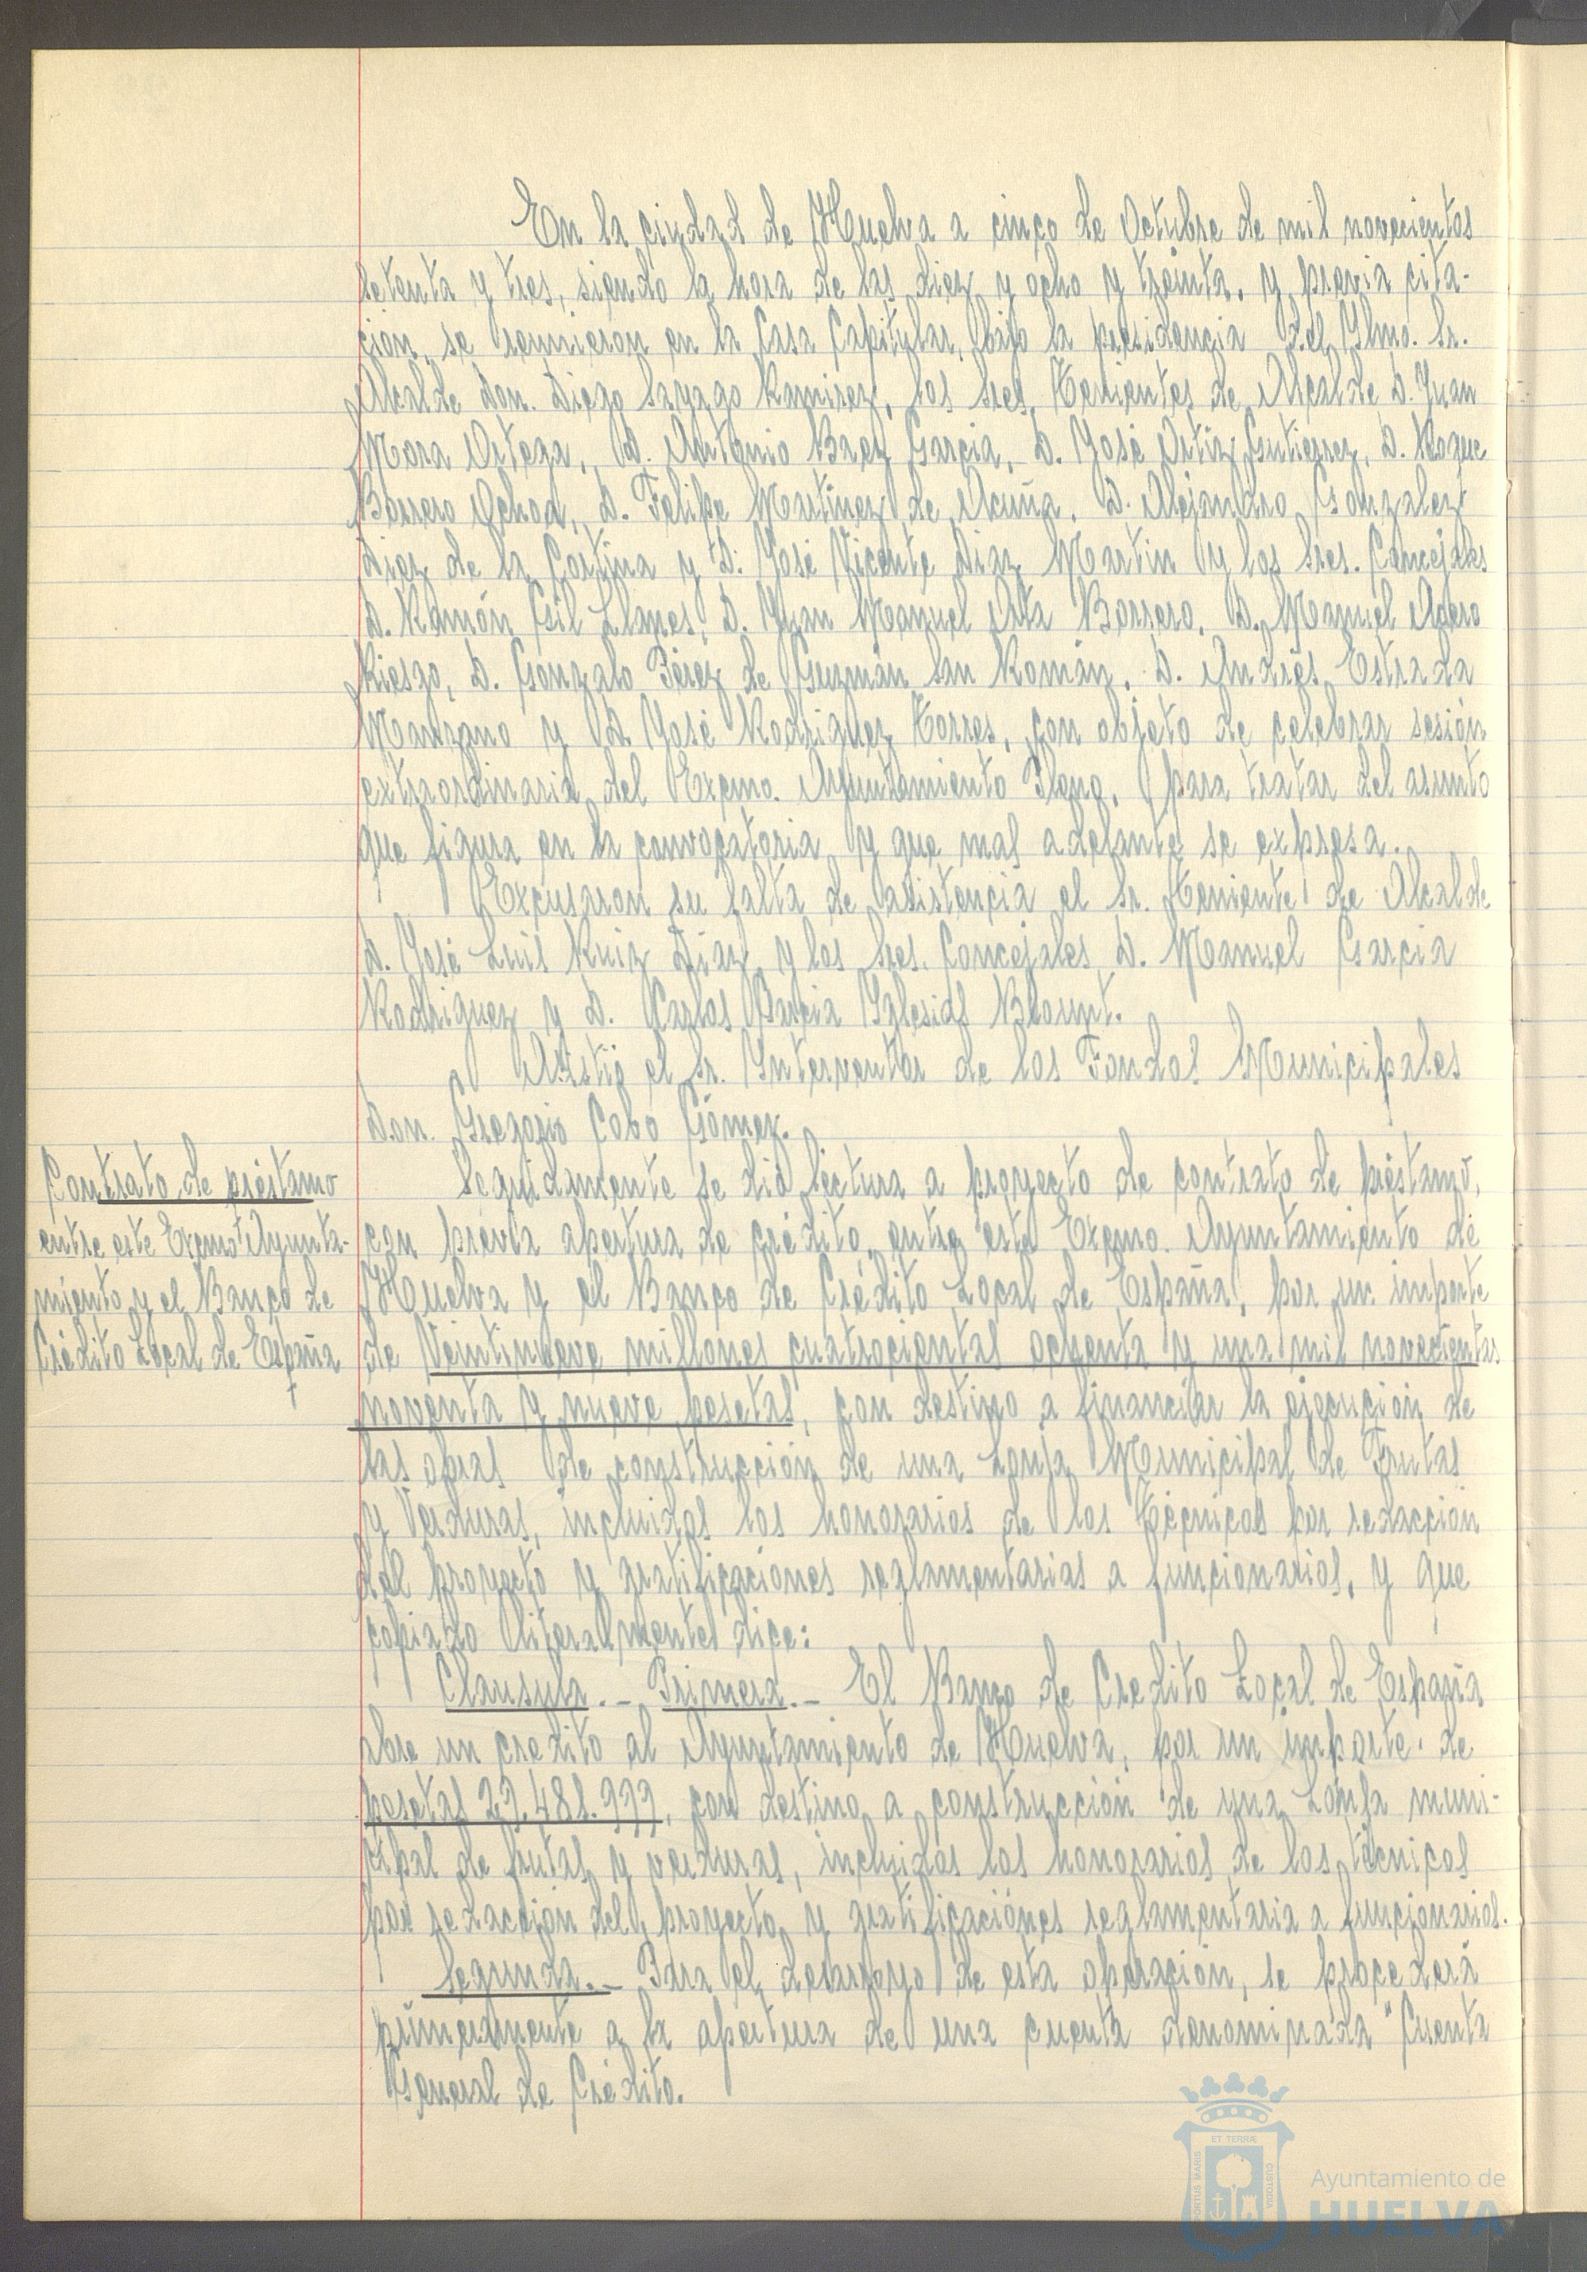 En la ciudad de Huelva a cinco de Octubre de mil novecientos
setenta y tres, siendo la hora de las diez y ocho y treinta, y previa cita-
ción, se reunieron en la Casa Capitular, bajo la presidencia del Ylmo. Sr.
Alcalde Don. Diego Sayago Ramirez, los Sres. Tenientes de Alcalde D. Juan
Mora Ortega, D. Antonio Baez Garcia, D. José Ortiz Gutierrez, D. Roque
Borrero Ochoa, D. Felipe Martinez de Acuña, D. Alejandro Gonzalez
Diez de la Cortina y D. José Vicente Diaz Martin y los Sres. Concejales
D. Ramón Gil Llanes, D. Juan Manuel Arta Borrero, D. Manuel Agero
Riesgo, D. Gonzalo Pérez de Guzmán San Román, D. Andrés Estrada
Manzano y D. José Rodriguez Torres, con objeto de celebrar sesión
extraordinaria del Excmo. Ayuntamiento Pleno, para tratar del asunto
que figura en la convocatoria y que mas adelante se expresa.
Excusaron su falta de asistencia el Sr. Teniente de Alcalde
D. José Luis Ruiz Diaz y los Sres. Concejales D. Manuel Garcia
Rodriguez y D. Carlos Garcia Yglesias Blount.
Asistió el Sr. Interventor de los Fondos Municipales
Don. Gregorio Cobo Gómez.
Contrato de préstamo
entre este Excmo Ayunta-
miento y el Banco de
Crédito Local de España
Seguidamente se dió lectura a proyecto de contrato de préstamo,
con previa apertura de crédito, entre este Excmo. Ayuntamiento de
Huelva y el Banco de Crédito Local de España, por un importe
de Veintinueve millones cuatrocientas ochenta y una mil novecientas
noventa y nueve pesetas, con destino a financiar la ejecución de
las obras de construcción de una Lonja Municipal de Frutas
y Verduras, incluidos los honorarios de los Técnicos por redacción
del proyecto y gratificaciones reglamentarias a funcionarios, y que
copiado literalmente dice:
Clausula.- Primera.- El Banco de Credito Local de España
abre un credito al Ayuntamiento de Huelva, por un importe de
pesetas 29.481.999, con destino a construcción de una Lonja muni-
cipal de frutas y verduras, incluidos los honorarios de los técnicos
por redacción del proyecto y gratificaciónes reglamentaria a funcionarios.
Segunda.- Para el desarroyo de esta operación, se procederá
primeramente a la apertura de una cuenta denominada "Cuenta
General de Crédito.
ET TERRÆ
PORTUS MARIS
CUSTODIA
Ayuntamiento de
HUELVA